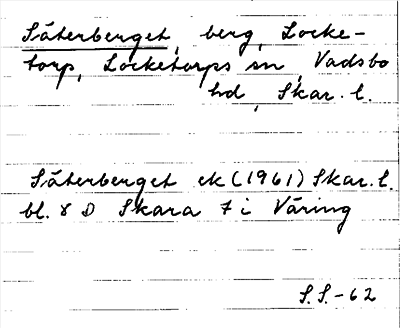 Säterberget, berg, Locke-
torp, Locketorps sn, Vadsbo
hd, Skar. l.
Säterberget ek (1961) Skar. l.
bl. 8 D Skara 7 i Väring
S.S.-62